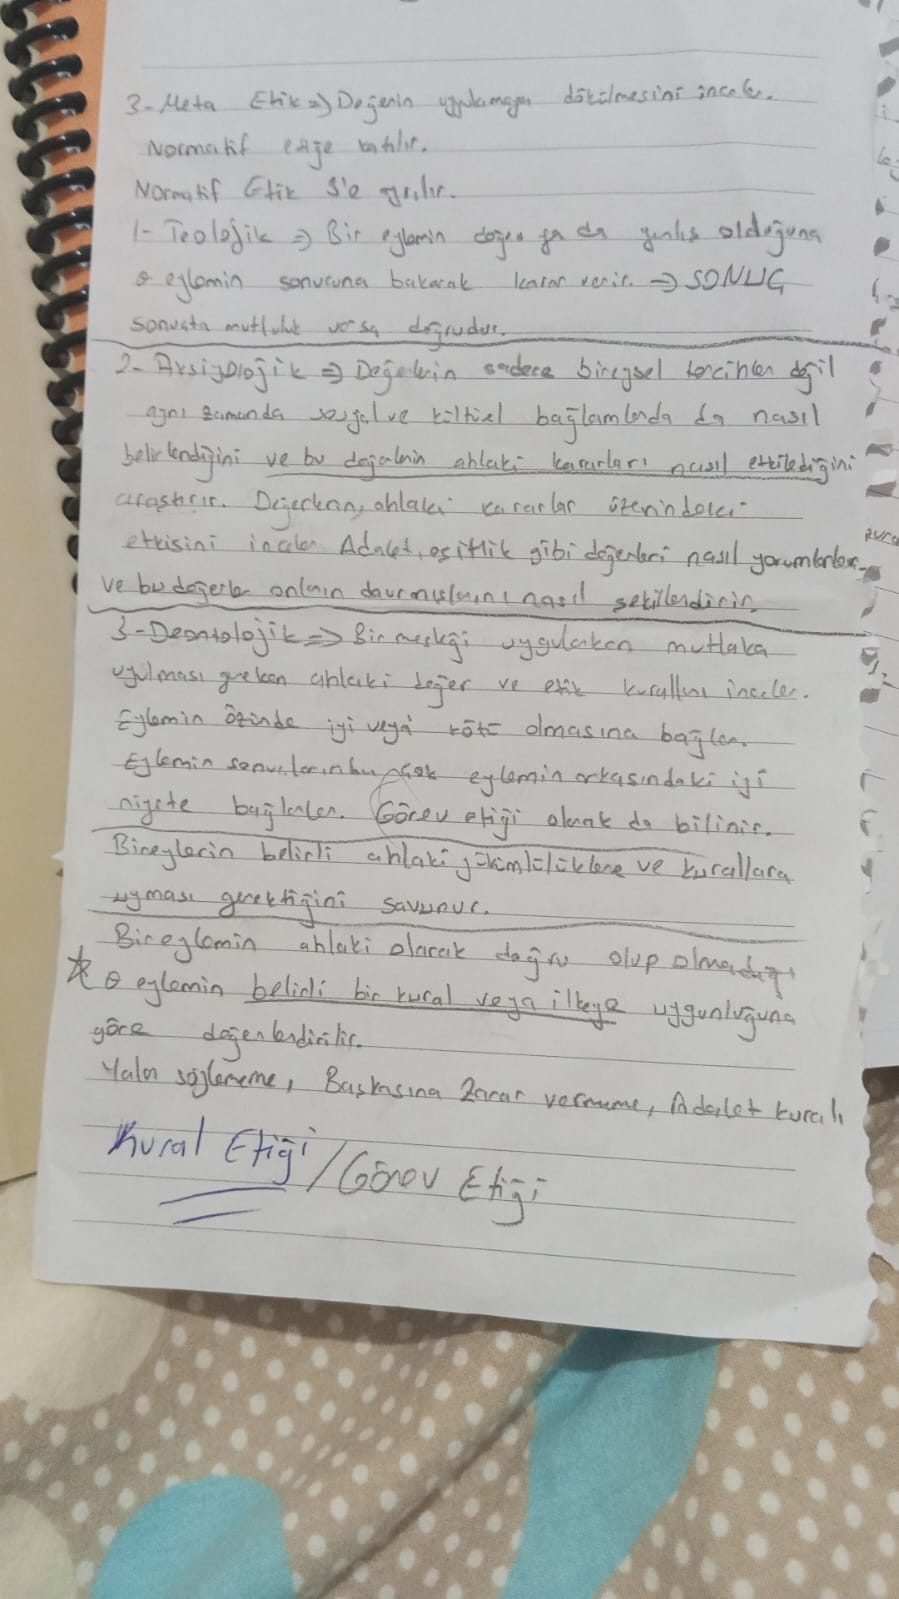 3- Meta Etik => Değerin uygulamaya dökülmesini inceler.
Normatif etiğe katılır.
Normatif Etik 3'e ayrılır.
1- Teolojik => Bir eylemin doğru ya da yanlış olduğuna
o eylemin sonucuna bakarak karar verir. => SONUÇ
sonuçta mutluluk varsa doğrudur.
2- Aksiyolojik => Değerlerin sadece bireysel tercihler değil
aynı zamanda sosyal ve kültürel bağlamlarda da nasıl
belirlendiğini ve bu değerlerin ahlaki kararları nasıl etkilediğini
araştırır. Değerlerin, ahlaki kararlar üzerindeki
etkisini inceler. Adalet, eşitlik gibi değerleri nasıl yorumlarlar
ve bu değerler onların davranışlarını nasıl şekillendirir.
3- Deontolojik => Bir mesleği uygularken mutlaka
uyulması gereken ahlaki değer ve etik kurallarını inceler.
Eylemin özünde iyi veya kötü olmasına bağlar.
Eylemin sonuçlarından çok eylemin arkasındaki iyi
niyete bağlarlar. Görev etiği olarak da bilinir.
Bireylerin belirli ahlaki yükümlülüklere ve kurallara
uyması gerektiğini savunur.
Bir eylemin ahlaki olarak doğru olup olmadığı
* o eylemin belirli bir kural veya ilkeye uygunluğuna
göre değerlendirilir.
Yalan söylememe, Başkasına zarar vermeme, Adalet kuralı
Kural Etiği / Görev Etiği